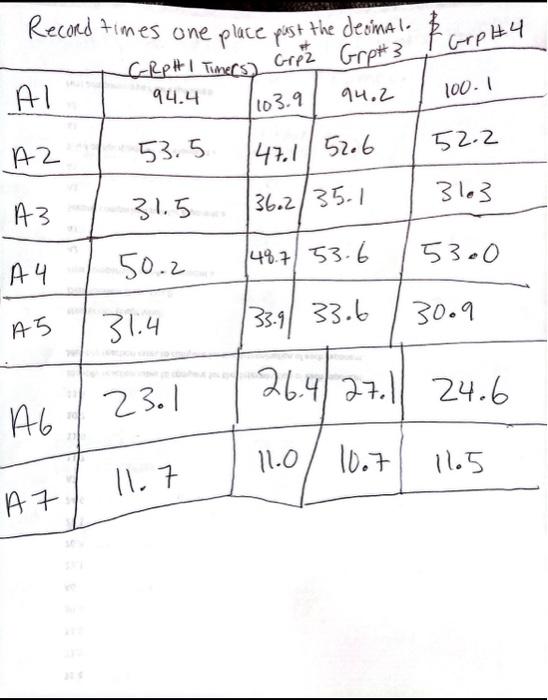 Record times one place past the decimal.
GRp#1 Time(s) Grp#2 Grp#3 Grp#4
A1 94.4 103.9 94.2 100.1
A2 53.5 47.1 52.6 52.2
A3 31.5 36.2 35.1 31.3
A4 50.2 48.7 53.6 53.0
A5 31.4 33.9 33.6 30.9
A6 23.1 26.4 27.1 24.6
A7 11.7 11.0 10.7 11.5